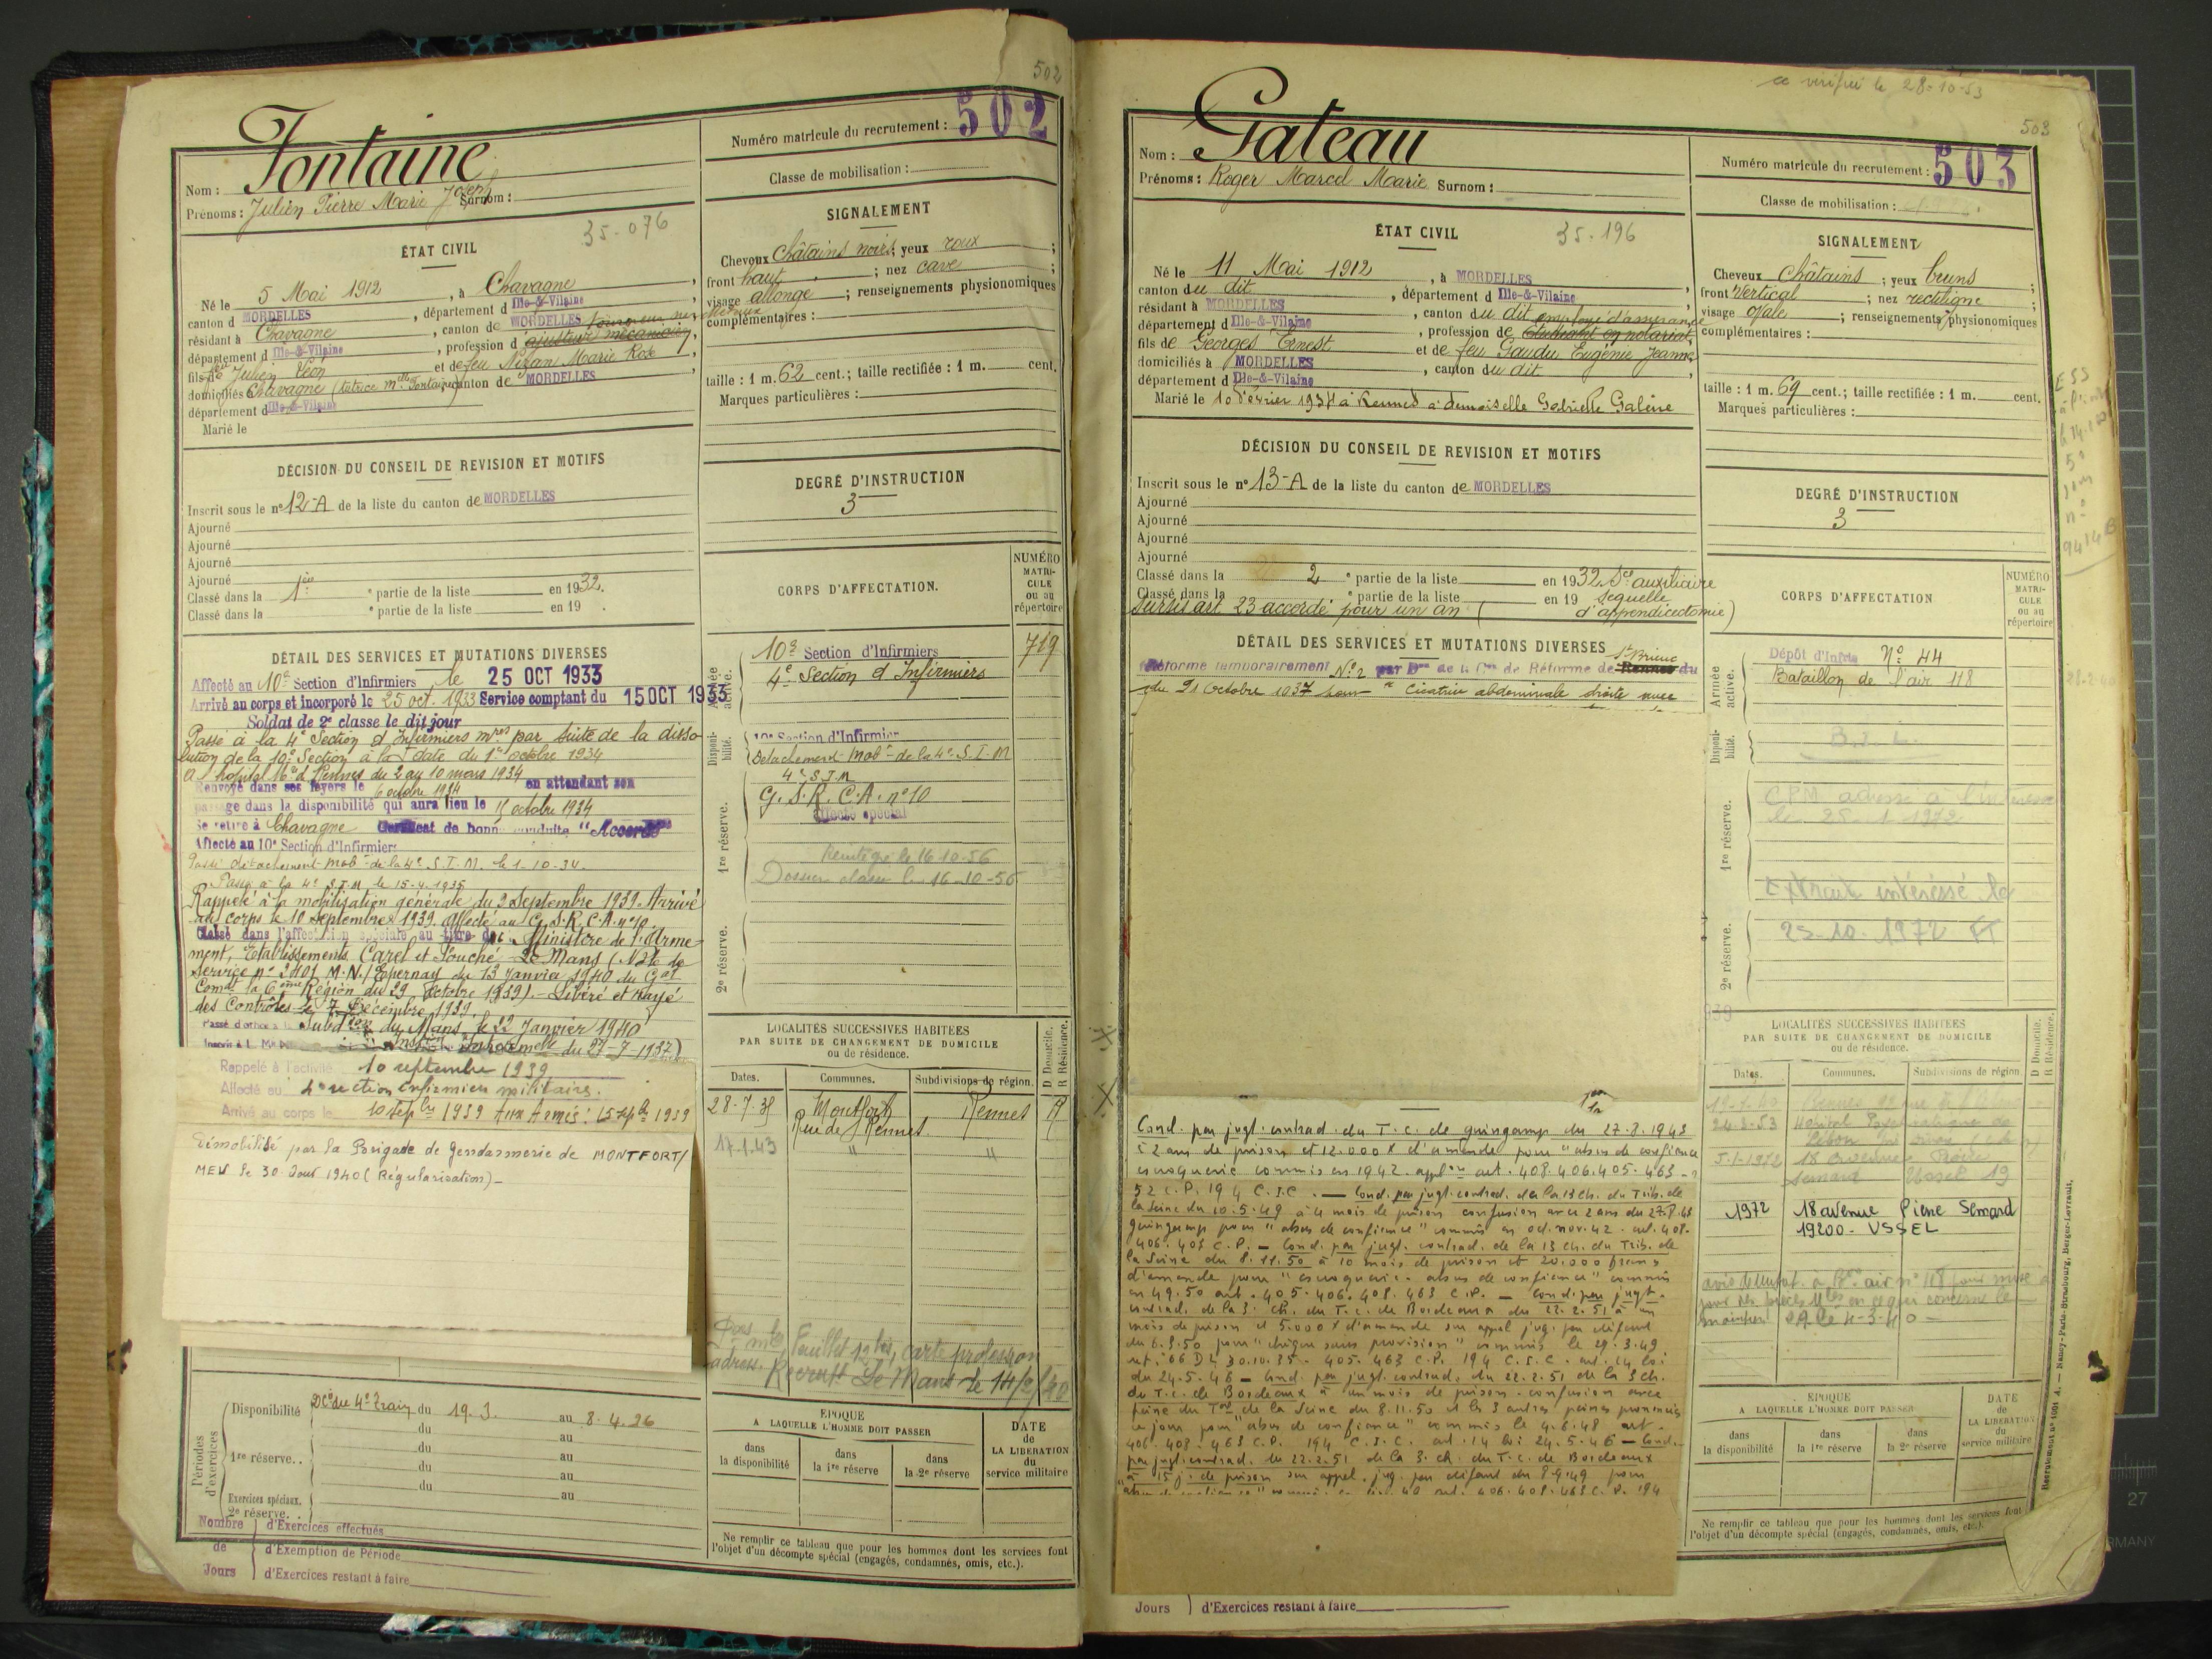 502
Fontaine
Nom :
Prénoms : Julien Pierre Marie Joseph Surnom :
Numéro matricule du recrutement : 502
Classe de mobilisation :
ÉTAT CIVIL
35-076
Né le 5 Mai 1912, à Chavagne,
canton d MORDELLES, département d Ille-&-Vilaine,
résidant à Chavagne, canton de MORDELLES
département d Ille-&-Vilaine, profession d ajusteur mécanicien,
fils de feu Julien Léon et de feu Nizan Marie Rose
domiciliés Chavagne (tutrice Mlle Fontaine) canton de MORDELLES,
département d Ille-&-Vilaine
Marié le
SIGNALEMENT
Cheveux châtains noirs ; yeux roux ;
front haut ; nez cave ;
visage allongé ; renseignements physionomiques
complémentaires :
taille : 1 m. 62 cent. ; taille rectifiée : 1 m. cent.
Marques particulières :
DÉCISION DU CONSEIL DE REVISION ET MOTIFS
Inscrit sous le n° 12-A de la liste du canton de MORDELLES
Ajourné
Ajourné
Ajourné
Ajourné
Classé dans la 1ère partie de la liste en 1932.
Classé dans la e partie de la liste en 19 .
DEGRÉ D'INSTRUCTION
3
CORPS D'AFFECTATION.
NUMÉRO MATRI- CULE ou au répertoire
Armée active.
10e Section d'Infirmiers 719
4e Section d'Infirmiers
Disponi- bilité.
10e Section d'Infirmier
Détachement Mobre de la 4e S.I.M
4e S.I.M
1re réserve.
G.S.R.C.A. n°10
Affecté spécial
Réintégré le 16-10-56
Dossier classé le 16-10-56
2e réserve.
DÉTAIL DES SERVICES ET MUTATIONS DIVERSES
Affecté au 10e Section d'Infirmiers le 25 OCT 1933
Arrivé au corps et incorporé le 25 oct. 1933 Service comptant du 15 OCT 1933
Soldat de 2e classe le dit jour
Passé à la 4e Section d'Infirmiers mres par suite de la disso-
lution de la 10e Section à la date du 1er octobre 1934
A l'hôpital Mre d Rennes du 2 au 10 mars 1934
Renvoyé dans ses foyers le 6 octobre 1934 en attendant son
passage dans la disponibilité qui aura lieu le 15 octobre 1934
Se retire à Chavagne Certificat de bonne conduite "Accordé"
Affecté au 10e Section d'Infirmiers
Passé détachement mobre de la 4e S.I.M. le 1-10-34.
Passé à la 4e S.I.M le 15-4-1935
Rappelé à la mobilisation générale du 2 Septembre 1939. Arrivé
au corps le 10 septembre 1939. Affecté au G.S.R.C.A. n°10.
Classé dans l'affectation spéciale au titre du Ministère de l'Arme-
ment, Etablissements Carel et Fouché Le Mans (Note de
service n° 2401 M.N./Epernay du 13 Janvier 1940 du Gal
Comdt la 6ème Région du 29 Octobre 1939). - Libéré et rayé
des Contrôles le 7 Décembre 1939.
Passé d'office à la Subdion du Mans le 22 Janvier 1940
du 27-7-1937)
Rappelé à l'activité 10 septembre 1939
Affecté au 4e section Infirmiers militaires.
Arrivé au corps le 10 septbre 1939 Aux Armées : 15 septbre 1939
Démobilisé par la Brigade de Gendarmerie de MONTFORT/
MEU le 30 Aout 1940 (Régularisation)-
LOCALITÉS SUCCESSIVES HABITÉES
PAR SUITE DE CHANGEMENT DE DOMICILE
ou de résidence.
D Domicile. R Résidence.
Dates. Communes. Subdivisions de région.
28-7-35 Montfort Rennes
17-1-43 Rue de Rennes " "
Feuillet 12 bis, carte profession
adress. Recrutt Le Mans le 14/2/40
Périodes d'exercices
Disponibilité DCo du 4e Train du 19.3. au 8.4.36
du au
1re réserve.. du au
du au
du au
Exercices spéciaux. au
2e réserve..
Nombre de Jours
d'Exercices effectués
d'Exemption de Période
d'Exercices restant à faire
ÉPOQUE
A LAQUELLE L'HOMME DOIT PASSER
dans la disponibilité
dans la 1re réserve
dans la 2e réserve
DATE de LA LIBÉRATION du service militaire
Ne remplir ce tableau que pour les hommes dont les services font
l'objet d'un décompte spécial (engagés, condamnés, omis, etc.).
vérifié le 28-10-53
503
Gateau
Nom :
Prénoms : Roger Marcel Marie Surnom :
Numéro matricule du recrutement : 503
Classe de mobilisation :
ÉTAT CIVIL
35.196
Né le 11 Mai 1912, à MORDELLES,
canton du dit, département d Ille-&-Vilaine,
résidant à MORDELLES, canton du dit employé d'assurance
département d Ille-&-Vilaine, profession de étudiant en notariat,
fils de Georges Ernest et de feu Gaudu Eugénie Jeanne
domiciliés à MORDELLES, canton du dit
département d Ille-&-Vilaine
Marié le 10 Février 1934 à Rennes à demoiselle Gabrielle Galène
SIGNALEMENT
Cheveux châtains ; yeux bruns ;
front Vertical ; nez rectiligne ;
visage ovale ; renseignements physionomiques
complémentaires :
taille : 1 m. 69 cent. ; taille rectifiée : 1 m. cent.
Marques particulières :
DÉCISION DU CONSEIL DE REVISION ET MOTIFS
Inscrit sous le n° 13-A de la liste du canton de MORDELLES
Ajourné
Ajourné
Ajourné
Ajourné
Classé dans la 2e partie de la liste en 1932 Sce auxiliaire
Classé dans la e partie de la liste en 19 Sequelle
Sursis art 23 accordé pour un an ( d'appendicectomie)
DEGRÉ D'INSTRUCTION
3
CORPS D'AFFECTATION
NUMÉRO MATRI- CULE ou au répertoire
Armée active.
Dépôt d'Infrie N° 44
Bataillon de l'air 118
Disponi- bilité.
1re réserve.
CPM adressé à l'intéressé
le 25-1-1972
Extrait intéressé le
2e réserve.
25-10-1972
DÉTAIL DES SERVICES ET MUTATIONS DIVERSES
Réformé temporairement N°2 par Don de la Con de Réforme de Rennes St Brieuc du
du 21 Octobre 1937 pour "Cicatrice abdominale droite avec
Cond. par jugt. contrad. du T.C. de Guingamp du 27-8-1943
à 2 ans de prison et 12.000 F d'amende pour "abus de confiance
escroquerie commis en 1942. applon art. 408.406.405.463-
52 C.P. 194 C.I.C. — Cond. par jugt. contrad. de la 13 ch. du Trib. de
la Seine du 10.5.49 à 4 mois de prison confusion avec 2 ans du 27.8.43
Guingamp pour "abus de confiance" commis en oct. nov. 42 - art. 408-
406. 407 C.P. — Cond. par jugt. contrad. de la 13 ch. du Trib. de
la Seine du 8.11.50 à 10 mois de prison et 20.000 francs
d'amende pour "escroquerie - abus de confiance" commis
en 49.50 art. 405.406.408.463 C.P. — Cond. par jugt.
contrad. de la 3 ch. du T.C. de Bordeaux du 22.2.51 à un
mois de prison et 5.000 F d'amende sur appel jug. par défaut
du 6.3.50 pour "chèque sans provision" commis le 29.3.49
art. 66 DL 30.10.35 - 405. 463 C.P. 194 C.I.C. art. 14 loi
du 24.5.46 — Cond. par jugt. contrad. du 22.2.51 de la 3 ch.
du T.C. de Bordeaux à un mois de prison - confusion avec
peine du Tral de la Seine du 8.11.50 et les 3 autres peines prononcées
ce jour pour "abus de confiance" commis le 4.6.48 art.
406. 408. 463 C.P. 194 C.I.C. art. 14 loi 24.5.46 — Cond.
par jugt. contrad. du 22.2.51 de la 3 ch. du T.C. de Bordeaux
à 15 j. de prison sur appel jug. par défaut du 8.9.49 pour
art. 406.408.463 C.P. 194
LOCALITÉS SUCCESSIVES HABITÉES
PAR SUITE DE CHANGEMENT DE DOMICILE
ou de résidence.
D Domicile. R Résidence.
Dates. Communes. Subdivisions de région
24-3-53
5-1-1972 18 avenue Pierre
Semard Ussel 19
1972 18 avenue Pierre Semard
19200 - USSEL
ÉPOQUE
A LAQUELLE L'HOMME DOIT PASSER
dans la disponibilité
dans la 1re réserve
dans la 2e réserve
DATE de LA LIBÉRATION du service militaire
Ne remplir ce tableau que pour les hommes dont les services font
l'objet d'un décompte spécial (engagés, condamnés, omis, etc.).
Jours d'Exercices restant à faire
Recrutement n° 1001 A. — Nancy-Paris-Strasbourg, Berger-Levrault.
27